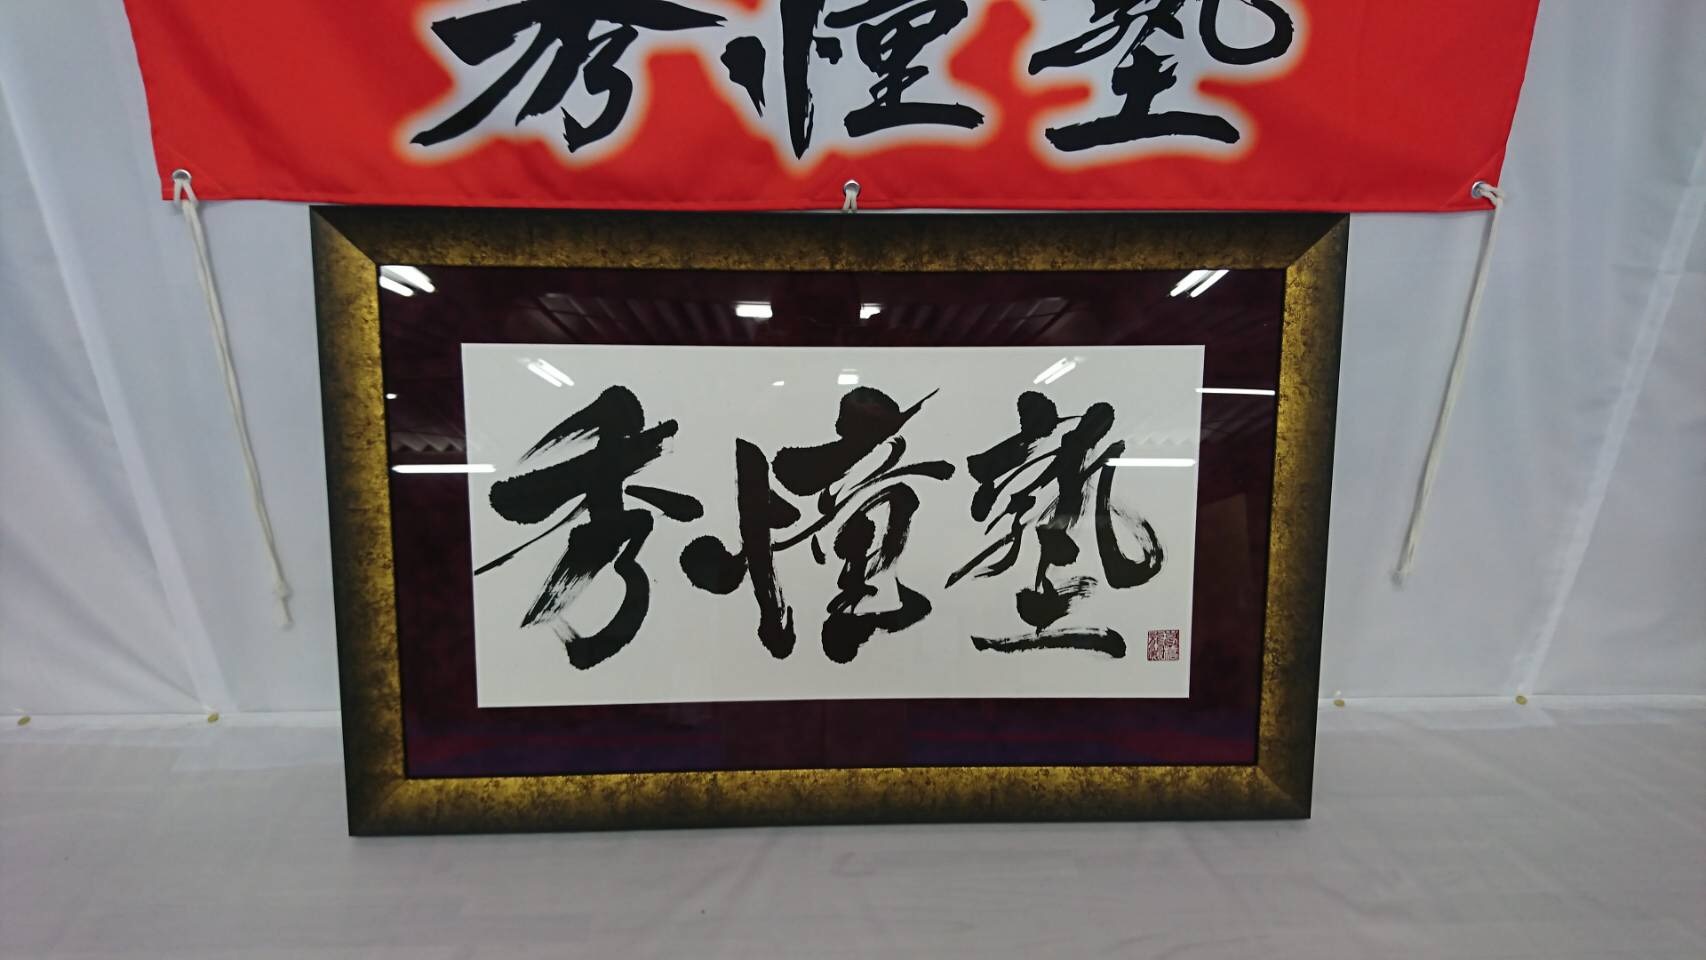 秀憧塾
秀憧塾